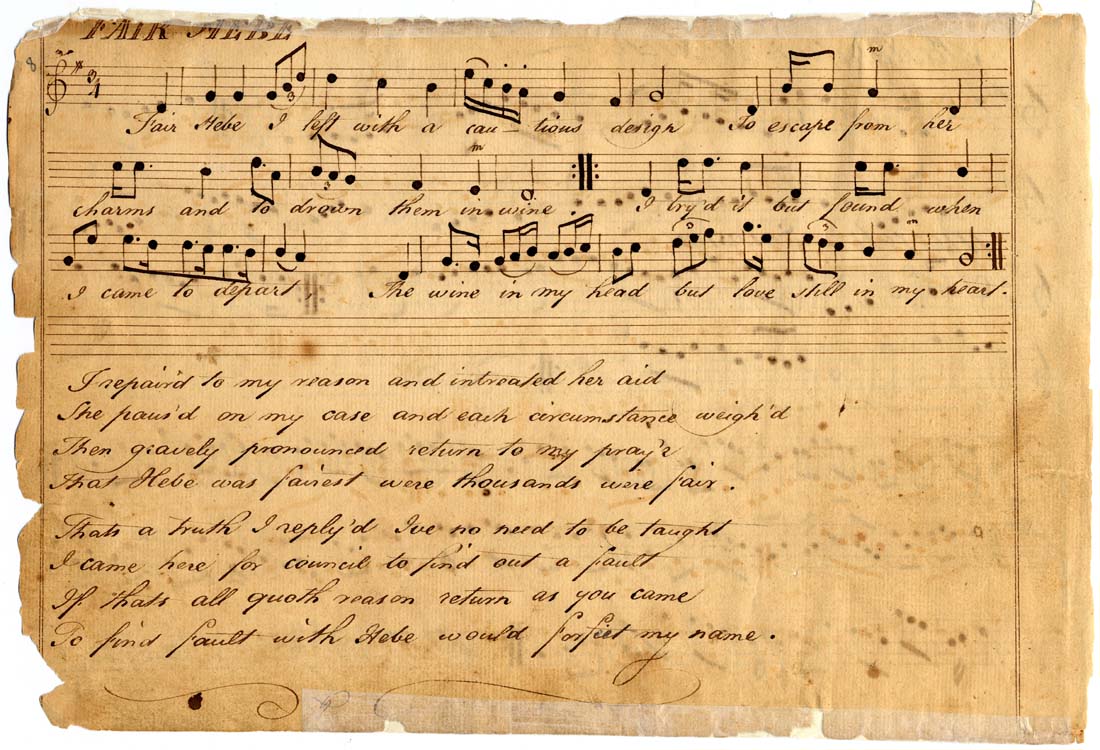 FAIR HEBE
8
3
4
3
m
Fair Hebe I left with a cau-tious design To escape from her
3
m
charms and to drown them in wine. I try'd it but found when
3
3
m
I came to depart, The wine in my head but love still in my heart.
I repair'd to my reason and intreated her aid
She paus'd on my case and each circumstance weigh'd
Then gravely pronounced return to my pray'r
That Hebe was fairest were thousands were fair.
Thats a truth I reply'd Ive no need to be taught
I came here for council to find out a fault
If thats all quoth reason return as you came
To find fault with Hebe would forfeit my name.